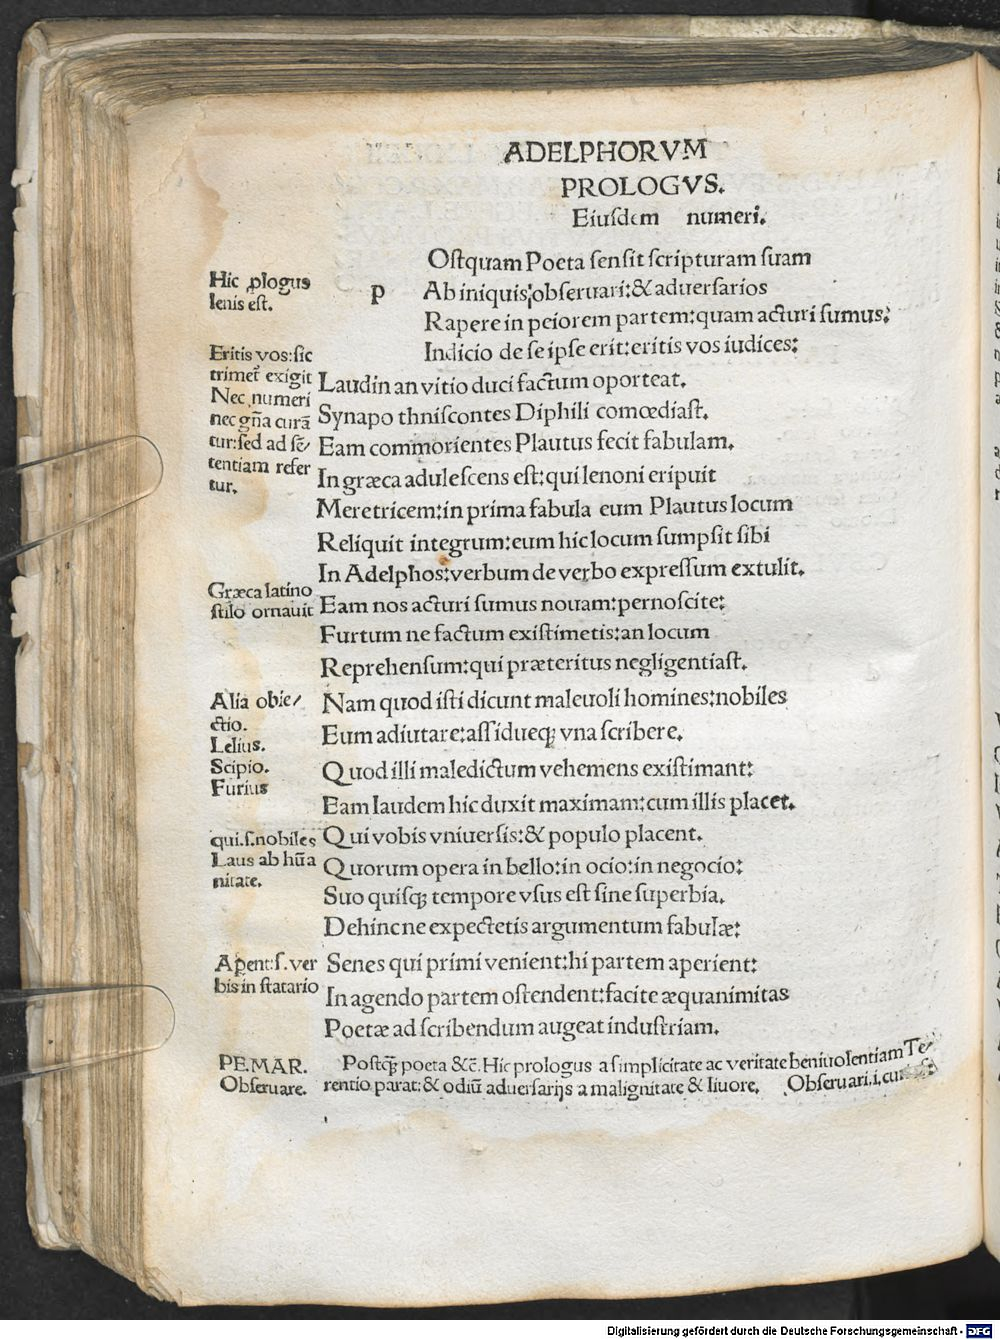 ADELPHORVM
PROLOGVS.
Eiusdem numeri.
Hic ꝓlogus
lenis est.
p
Oſtquam Poeta ſenſit ſcripturam ſuam
Ab iniquis obſeruari:& aduerſarios
Rapere in peiorem partem:quam acturi ſumus:
Indicio de ſe ipſe erit:eritis vos iudices:
Eritis vos:ſic
trimet̃ exigit
Nec numeri
nec gña curã
tur:ſed ad ſẽ/
tentiam refer
tur.
Laudin an vitio duci factum oporteat.
Synapo thniſcontes Diphili comœdiaſt.
Eam commorientes Plautus fecit fabulam.
In græca aduleſcens eſt:qui lenoni eripuit
Meretricem:in prima fabula eum Plautus locum
Reliquit integrum:eum hic locum ſumpſit ſibi
In Adelphos:verbum de verbo expreſſum extulit.
Græca latino
ſtilo ornauit
Eam nos acturi ſumus nouam:pernoſcite:
Furtum ne factum exiſtimetis:an locum
Reprehenſum:qui præteritus negligentiaſt.
Alia obie/
ctio.
Lelius.
Scipio.
Furius
Nam quod iſti dicunt maleuoli homines:nobiles
Eum adiutare:aſſidueqꝫ vna ſcribere.
Quod illi maledictum vehemens exiſtimant:
Eam laudem hic duxit maximam:cum illis placet.
qui.ſ.nobiles
Laus ab hũa
nitate.
Qui vobis vniuerſis:& populo placent.
Quorum opera in bello:in ocio:in negocio:
Suo quiſqꝫ tempore vſus eſt ſine ſuperbia.
Dehinc ne expectetis argumentum fabulæ:
Apent:ſ.ver
bis in ſtatario
Senes qui primi venient:hi partem aperient:
In agendo partem oſtendent:facite æquanimitas
Poetæ ad ſcribendum augeat induſtriam.
PE.MAR.
Obſeruare.
Poſtqꝫ poeta &c̃. Hic prologus a ſimplicitate ac veritate beniuolentiam Te/
rentio parat:& odiũ aduerſarijs a malignitate & liuore. Obſeruari.i.
Digitalisierung gefördert durch die Deutsche Forschungsgemeinschaft - DFG